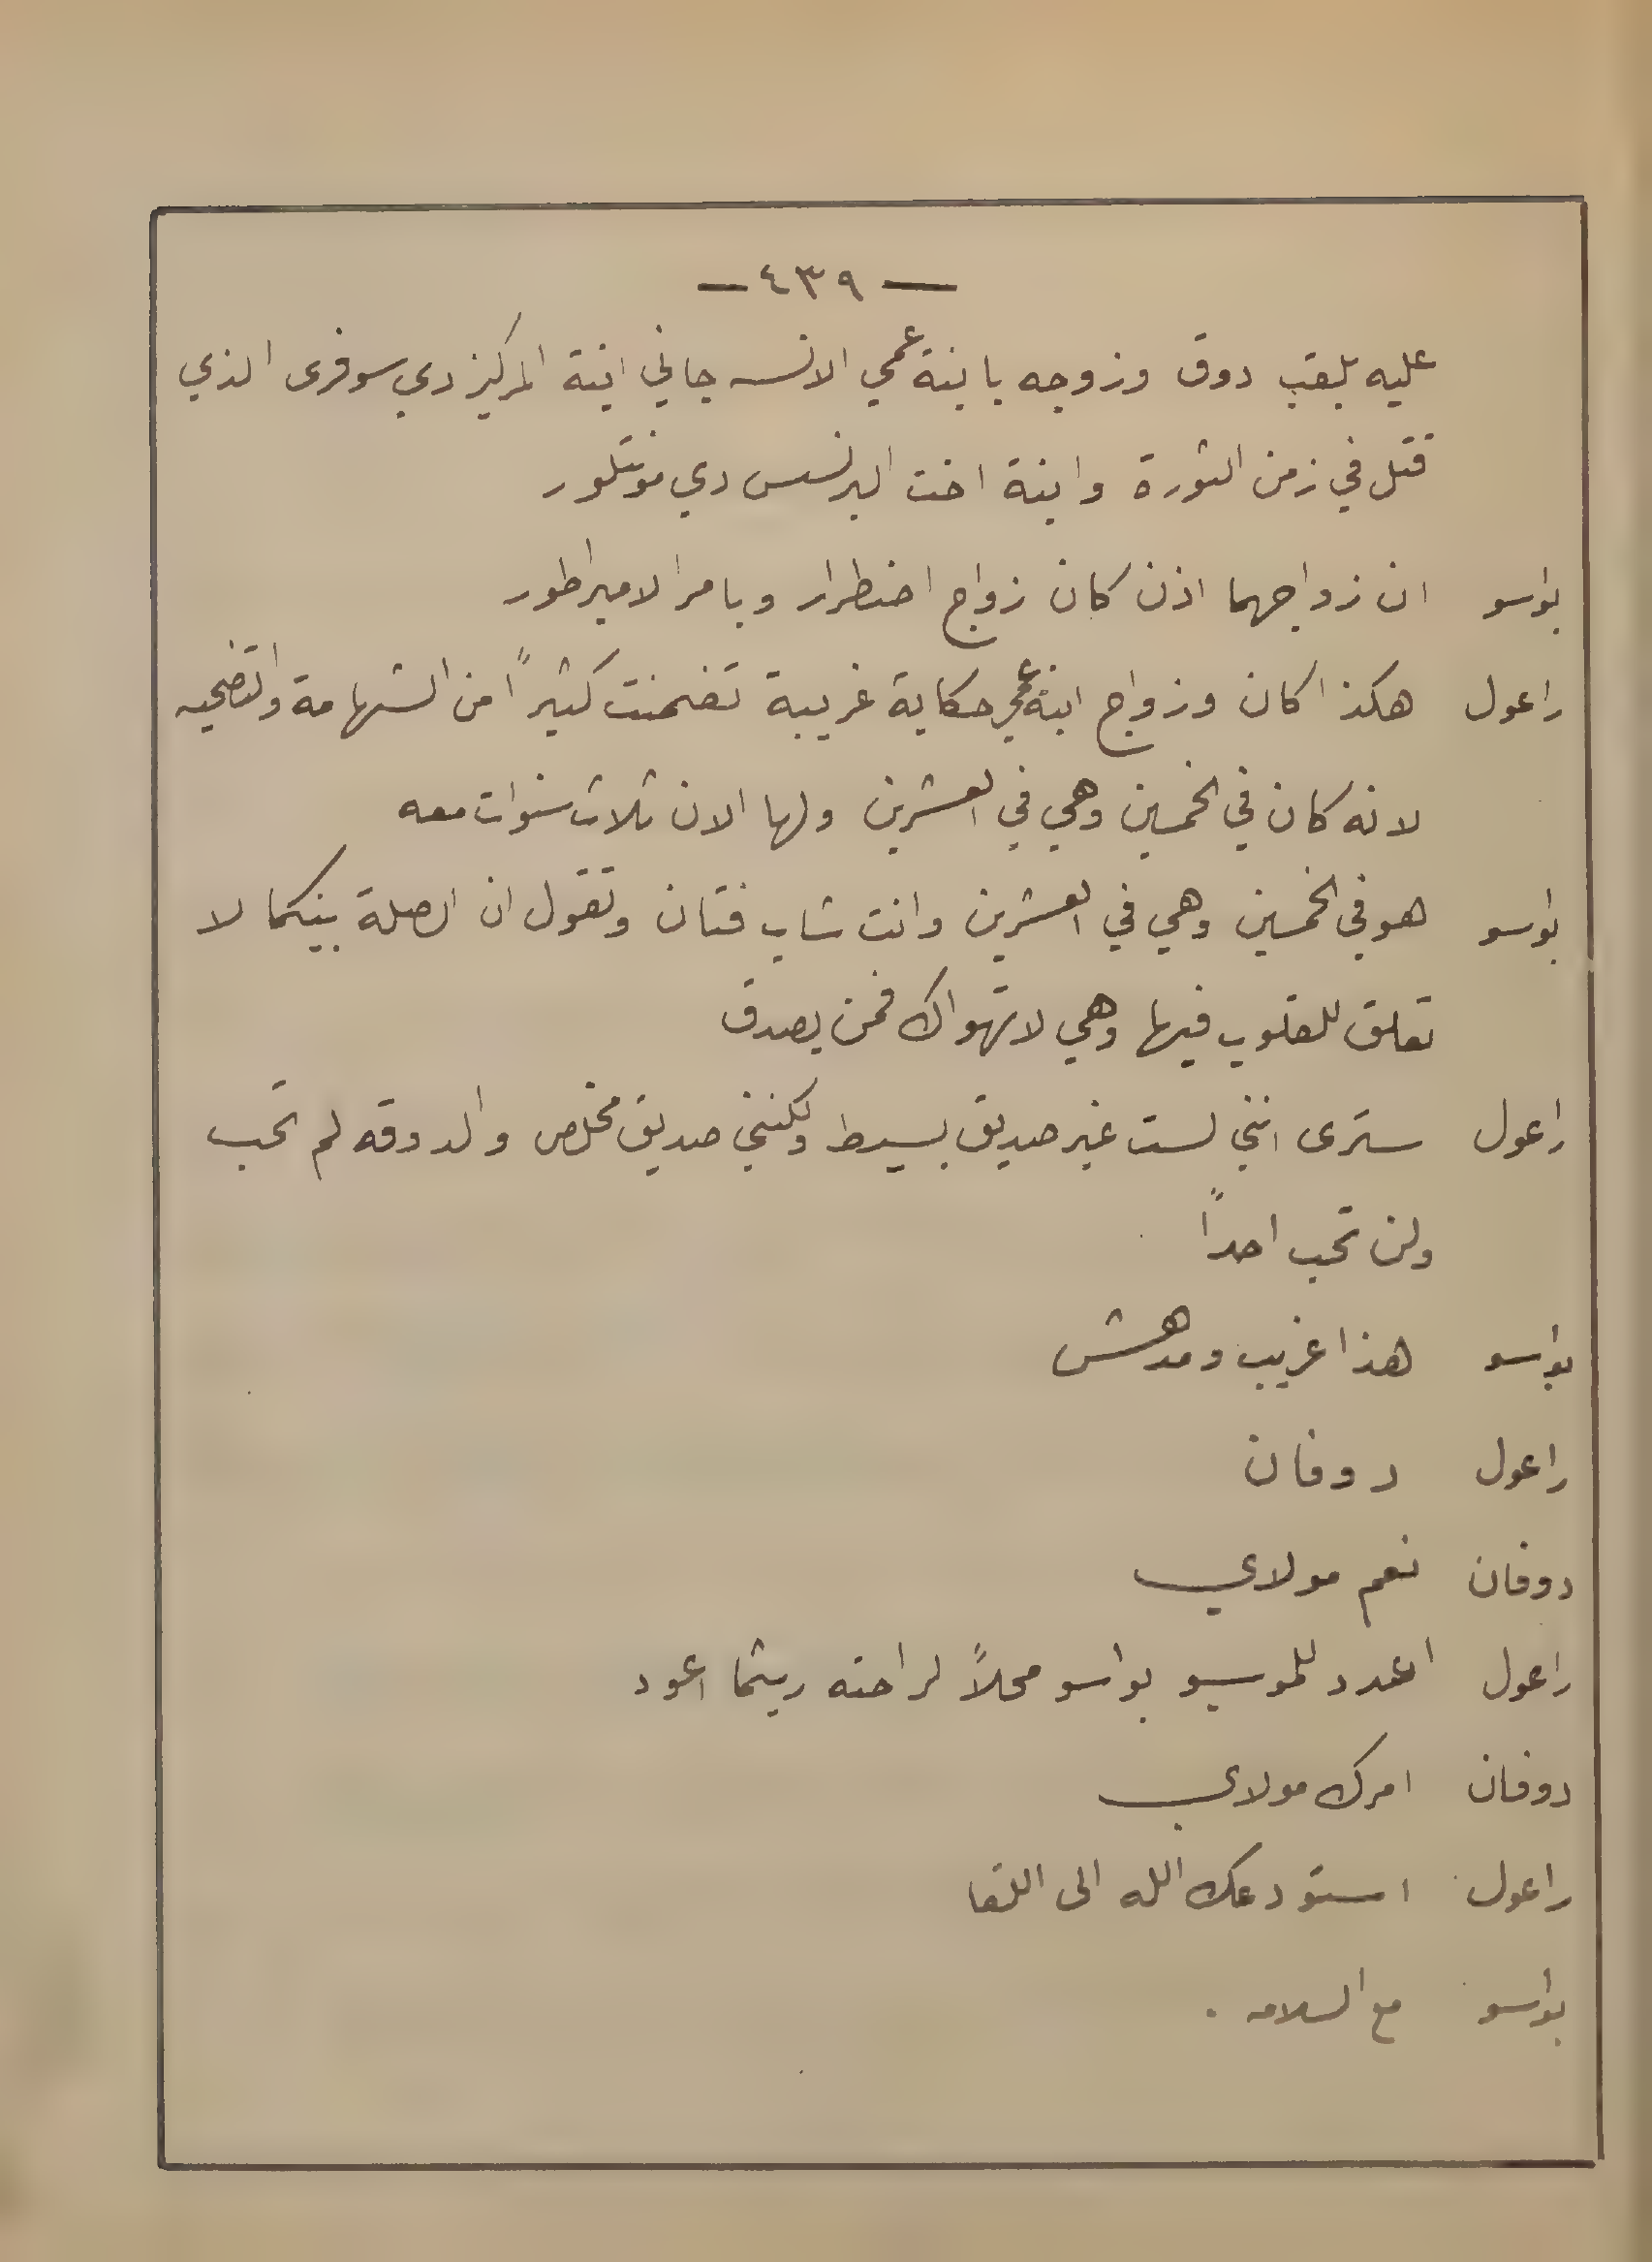 — ٤٣٩ —
عليه بلقب دوق وزوجه بابنة عمي الانسه جاني ابنة المركيز دي سوفرى الذي
قتل في زمن الثورة وابنة اخت البرنسس دي مونتلور
بواسو ان زواجهما اذن كان زواج اضطرار وبامر الامبراطور
راعول هكذا كان وزواج ابنة عمي حكاية غريبة تضمنت كثيراً من الشهامة والتضحيه
لانه كان في الخمسين وهي في العشرين ولها الان ثلاث سنوات معه
بواسو هو في الخمسين وهي في العشرين وانت شاب فتان وتقول ان الصلة بينكما لا
تعلق للقلوب فيها وهي لا تهواك فمن يصدق
راعول سترى انني لست غير صديق بسيط ولكنني صديق مخلص والدوقه لم تحب
ولن تحب احداً
بواسو هذا غريب ومدهش
راعول دوفان
دوفان نعم مولاي
راعول اعدد للموسيو بواسو محلاً لراحته ريثما اعود
دوفان امرك مولاي
راعول استودعك الله الى اللقا
بواسو مع السلامه .